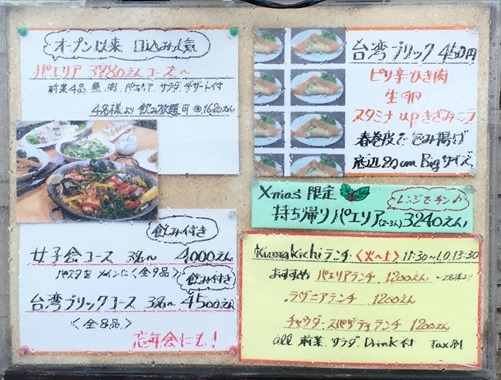 オープン以来 口込み人気
パエリア 3980えんコース～
前菜4品 魚 肉 パエリア サラダ デザート付
4名様より飲み放題可 @1620えん
飲み付き
女子会コース 3名～ 4000えん
パスタをメインに〈全9品〉
飲み付き
台湾ブリックコース 3名～ 4500えん
〈全8品〉
忘年会にも!
台湾ブリック 450円
ピリ辛ひき肉
生卵
スタミナupきざみニラ
春巻皮で包み揚げ
底辺20cm Bigサイズ
Xmas 限定
レンジでチン♪
持ち帰りパエリア(2~3人) 3240えん!
Kumakichiランチ 〈火～土〉 11:30～L.O 13:30
おすすめ パエリアランチ 1200えん ～2名様より
ラザニアランチ 1200えん
チャウダースパゲティランチ 1200えん
all 前菜 サラダ Drink付 Tax別